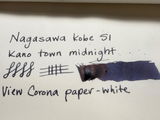 Nagasawa Kobe 51
Kano town midnight
View Corona paper-white